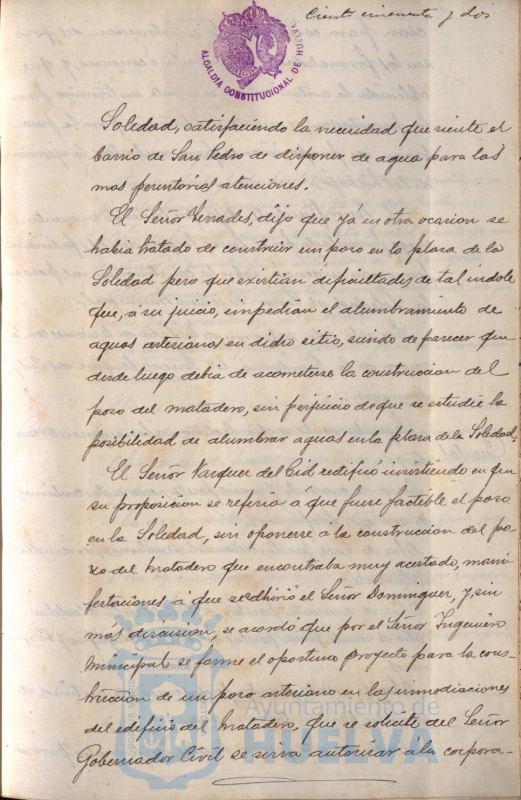 Ciento cincuenta y dos
ALCALDIA CONSTITUCIONAL DE HUELVA
Soledad, satisfaciendo la necesidad que siente el
barrio de San Pedro de disponer de agua para las
mas perentorias atenciones.
El Señor Terrades, dijo que yá en otra ocasion se
habia tratado de construir un poso en la plasa de la
Soledad pero que existian dificultades de tal indole
que, a su juicio, inpedian el alumbramiento de
aguas artesianas en dicho sitio, siendo de parecer que
desde luego debia de acometerse la construccion del
poso del matadero, sin perjuicio de que se estudie la
posibilidad de alumbrar aguas en la plasa de la Soledad.
El Señor Vasquez del Cid rectificó insistiendo en que
su proposicion se referia a que fuese factible el poso
en la Soledad, sin oponerse á la construccion del po-
zo del Matadero que encontraba muy acertado, mani-
festaciones á que se adhirió el Señor Dominguez, y, sin
mas discusion, se acordó que por el Señor Ingeniero
Municipal se forme el oportuno proyecto para la cons-
truccion de un poso artesiano en las inmediaciones
del edificio del Matadero, que se solicite del Señor
Gobernador Civil se sirva autorizar á la corpora-
Ayuntamiento de
HUELVA